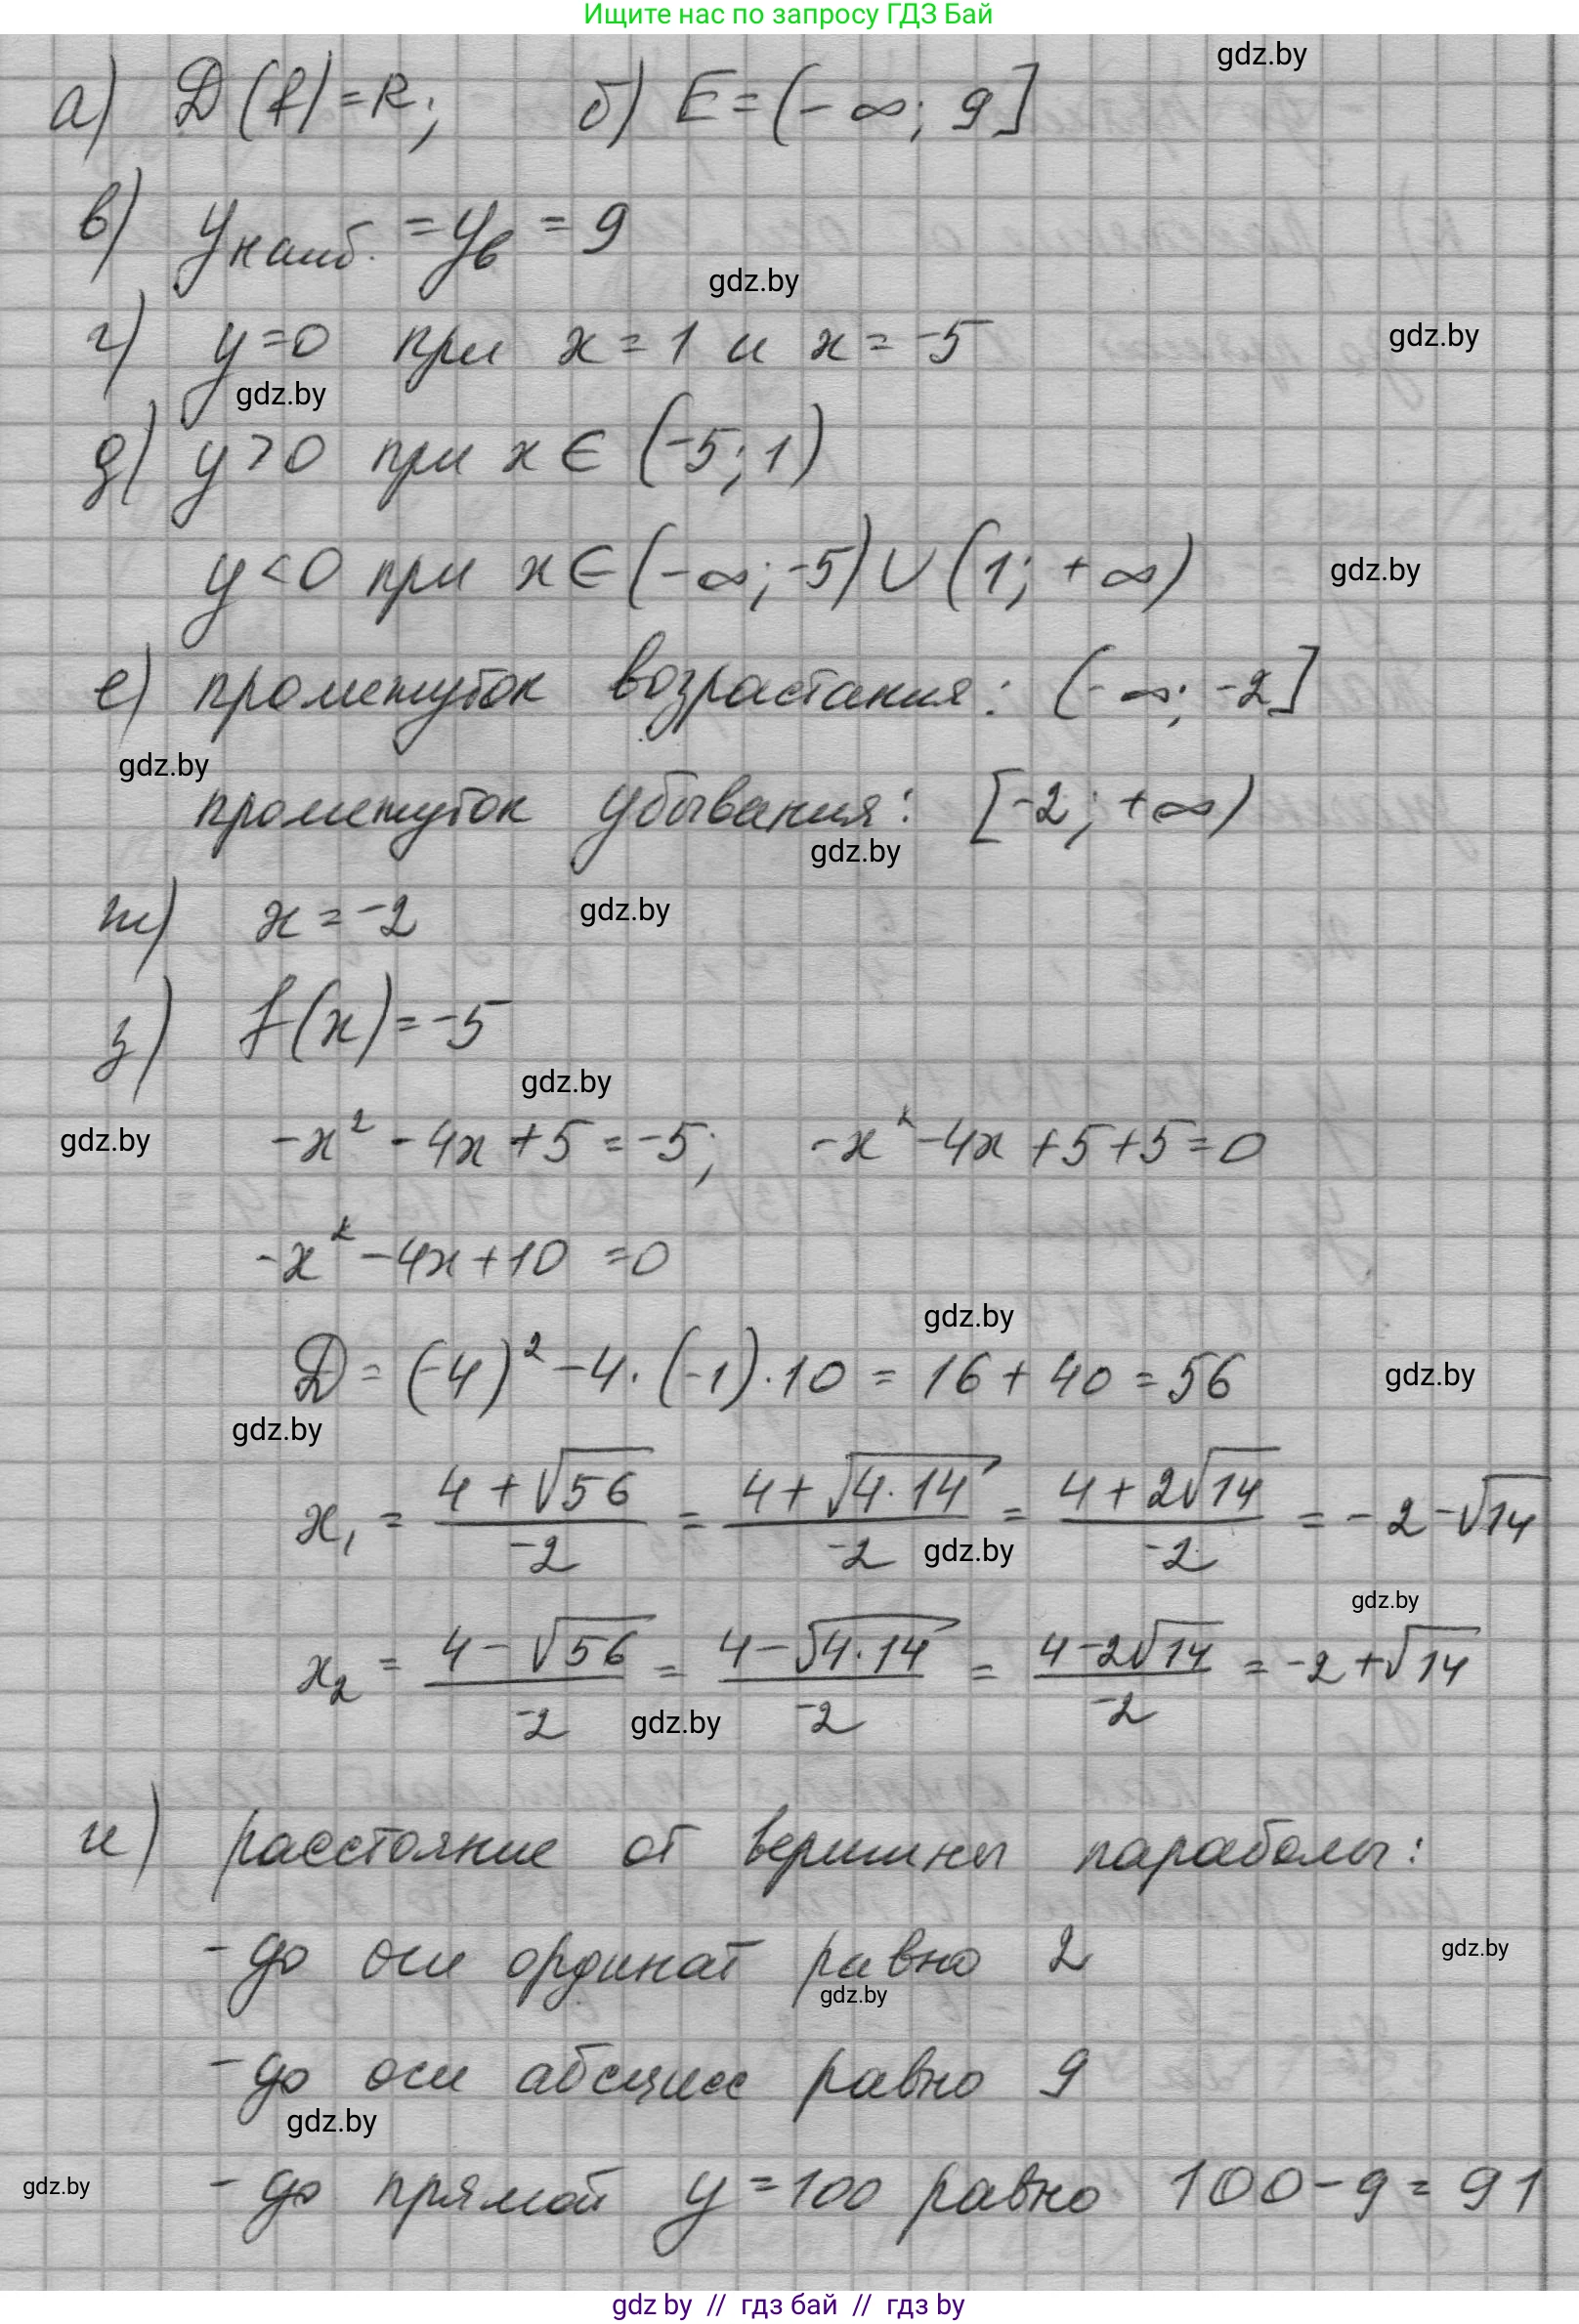 Ищите нас по запросу ГДЗ Бай
gdz.by
а) D(f)=R; б) E=(-∞; 9]
в) yнаиб. = yв = 9
gdz.by
г) y=0 при x=1 и x=-5
gdz.by
gdz.by
д) y>0 при x∈(-5;1)
y<0 при x∈(-∞;-5)∪(1;+∞)
gdz.by
е) промежуток возрастания: (-∞; -2]
gdz.by
промежуток убывания: [-2; +∞)
gdz.by
ж) x=-2
gdz.by
з) f(x)=-5
gdz.by
gdz.by
-x² - 4x + 5 = -5; -x² - 4x + 5 + 5 = 0
-x² - 4x + 10 = 0
gdz.by
D = (-4)² - 4·(-1)·10 = 16 + 40 = 56
gdz.by
gdz.by
x₁ = (4+√56)/(-2) = (4+√(4·14))/(-2) = (4+2√14)/(-2) = -2-√14
gdz.by
gdz.by
x₂ = (4-√56)/(-2) = (4-√(4·14))/(-2) = (4-2√14)/(-2) = -2+√14
gdz.by
и) расстояние от вершины параболы:
- до оси ординат равно 2
gdz.by
gdz.by
- до оси абсцисс равно 9
gdz.by
gdz.by
- до прямой y=100 равно 100-9=91
gdz.by // гдз бай // гдз by